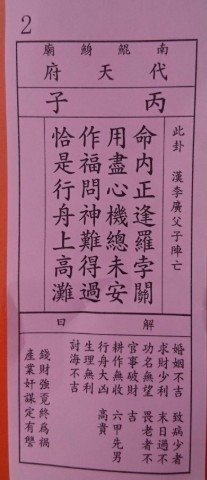 2
南鯤鯓廟
代天府
丙子
此卦 漢李廣父子陣亡
命內正逢羅孛關
用盡心機總未安
作福問神難得過
恰是行舟上高灘
解曰
婚姻不吉 致病少者
求財少利 末日過不
功名無望 畏老者不
官事破財 吉
耕作無收 六甲先男
行舟大凶 高貴
生理無利
討海不吉
錢財強覓終為禍
產業奸謀定有讐